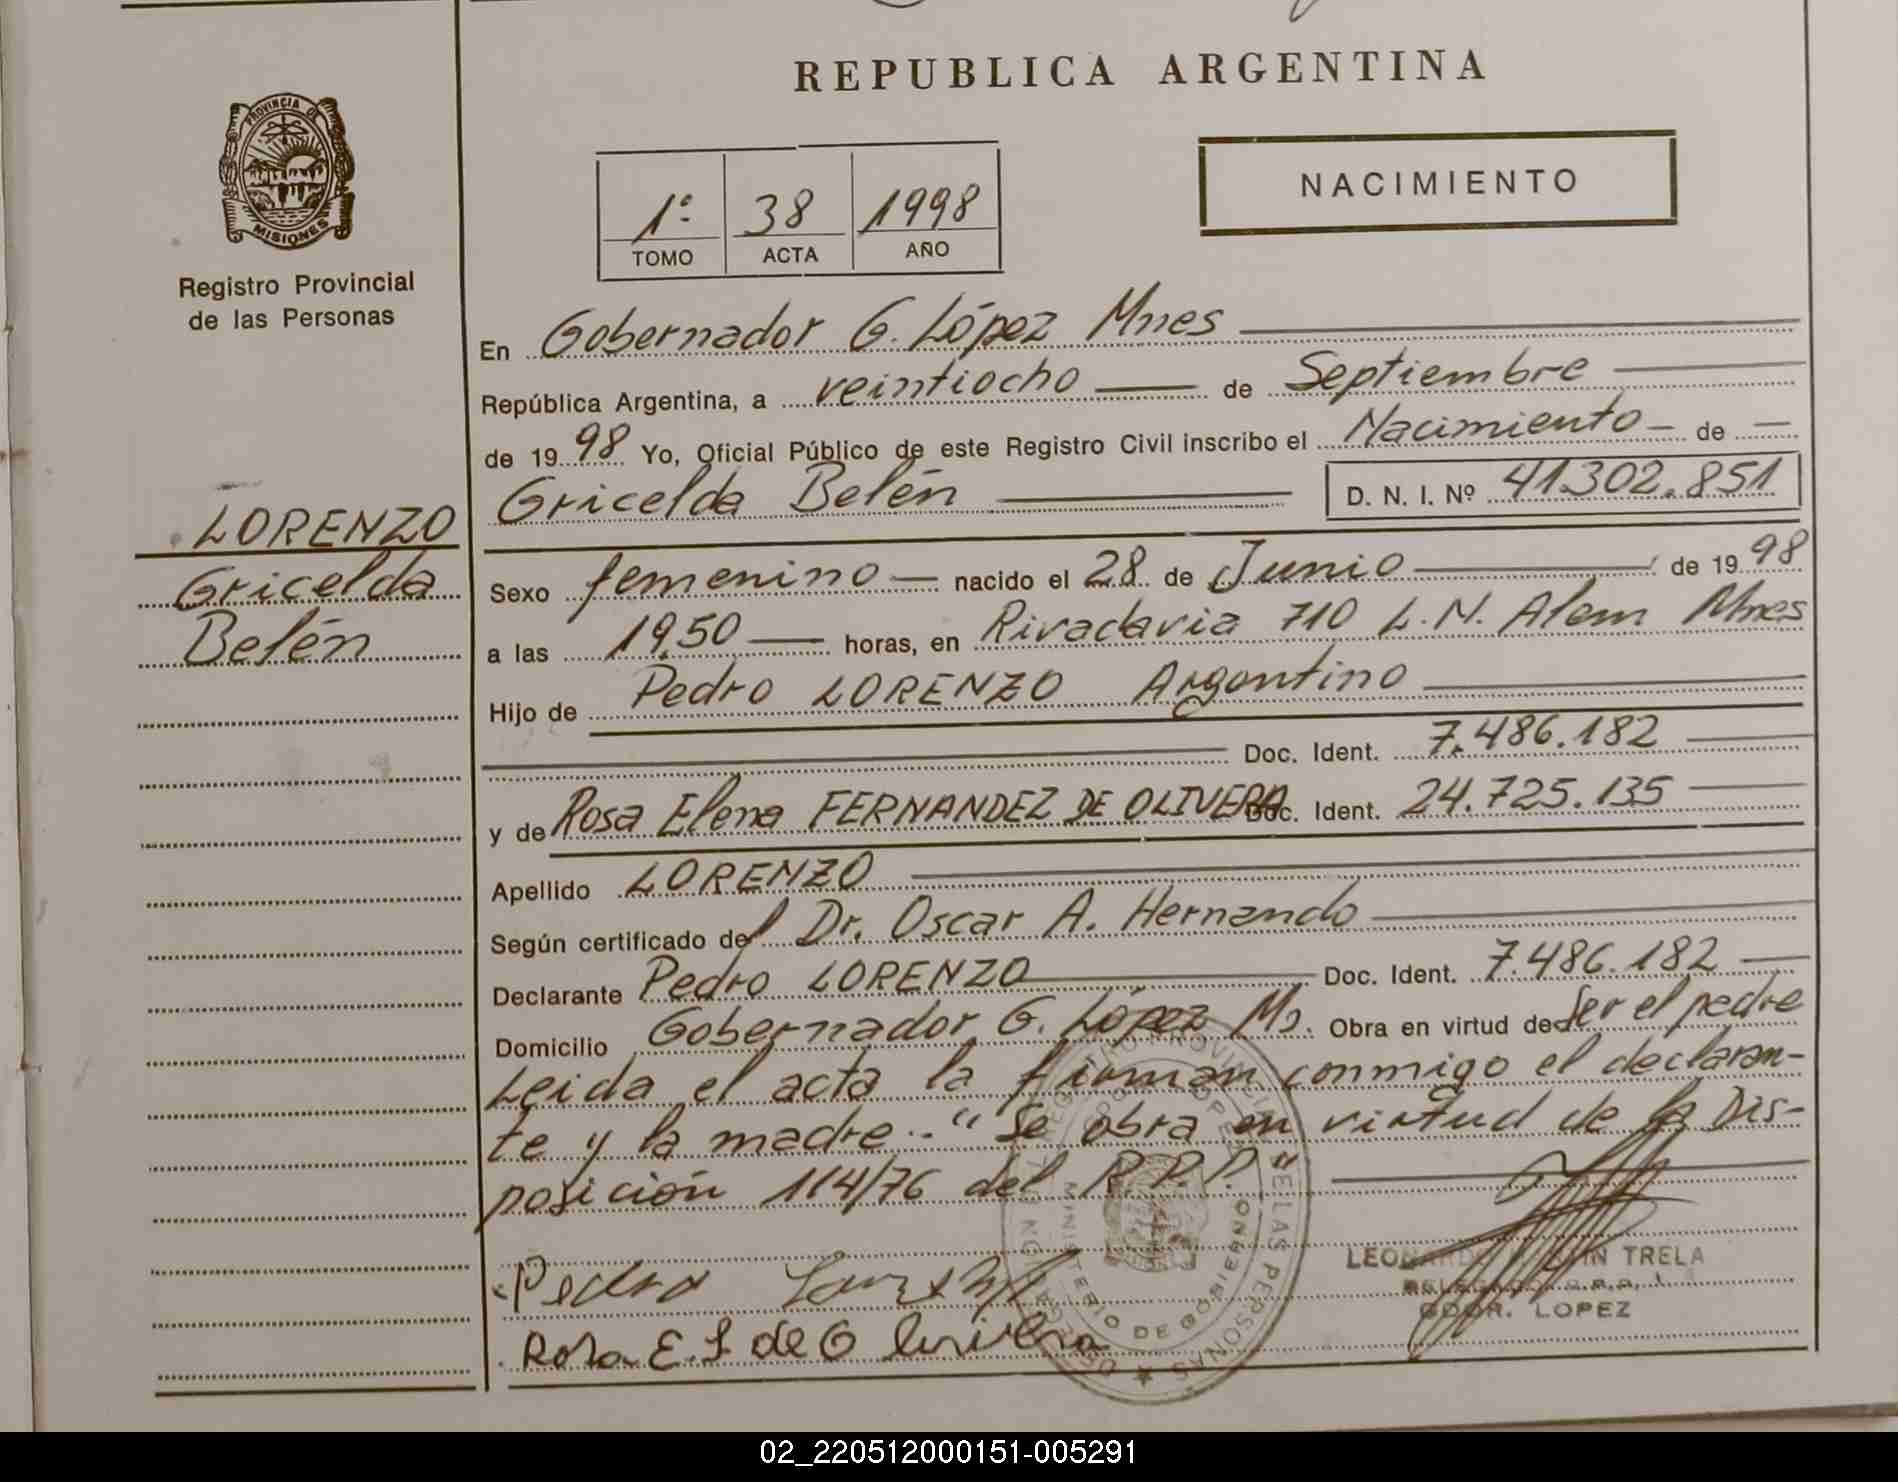 REPUBLICA ARGENTINA
PROVINCIA DE
MISIONES
Registro Provincial
de las Personas
1º 38 1998
TOMO ACTA AÑO
NACIMIENTO
En Gobernador G. López Mnes
República Argentina, a veintiocho de Septiembre
de 19 98 Yo, Oficial Público de este Registro Civil inscribo el Nacimiento de
Gricelda Belén D. N. I. Nº 41.302.851
LORENZO
Gricelda
Belén
Sexo femenino nacido el 28 de Junio de 19 98
a las 19,50 horas, en Rivadavia 710 L. N. Alem Mnes
Hijo de Pedro LORENZO Argentino
Doc. Ident. 7.486.182
y de Rosa Elena FERNANDEZ DE OLIVERA Doc. Ident. 24.725.135
Apellido LORENZO
Según certificado del Dr. Oscar A. Hernando
Declarante Pedro LORENZO Doc. Ident. 7.486.182
Domicilio Gobernador G. López Ms. Obra en virtud de Ser el padre
Leida el acta la firman conmigo el declaran-
te y la madre.- "Se obra en virtud de la Dis-
posición 114/76 del R.P.P."
Pedro
LEONARDO TRELA
GDOR. LOPEZ
Rosa E. F. de O
MINISTERIO DE GOBIERNO
DE LAS PERSONAS
02_220512000151-005291